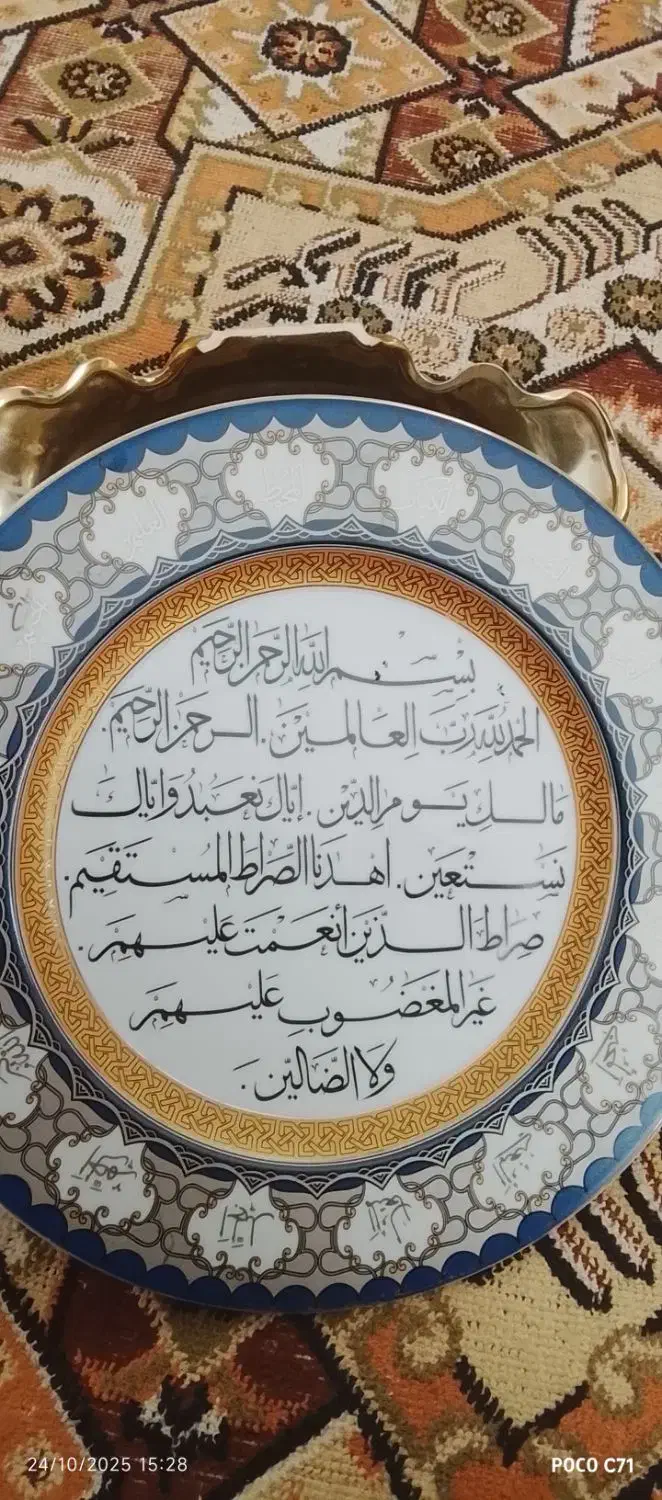 بِسْمِ اللهِ الرَّحْمٰنِ الرَّحِيْمِ
الحَمْدُ للهِ رَبِّ العَالَمِينَ . الرَّحْمٰنِ الرَّحِيْمِ .
مَالِكِ يَوْمِ الدِّيْنِ . إِيَّاكَ نَعْبُدُ وَإِيَّاكَ
نَسْتَعِين . اهْدِنَا الصِّرَاطَ المُسْتَقِيْمَ .
صِرَاطَ الَّذِيْنَ أَنْعَمْتَ عَلَيْهِمْ .
غَيْرِ المَغْضُوبِ عَلَيْهِمْ
وَلَا الضَّالِّيْنَ .
24/10/2025 15:28
POCO C71